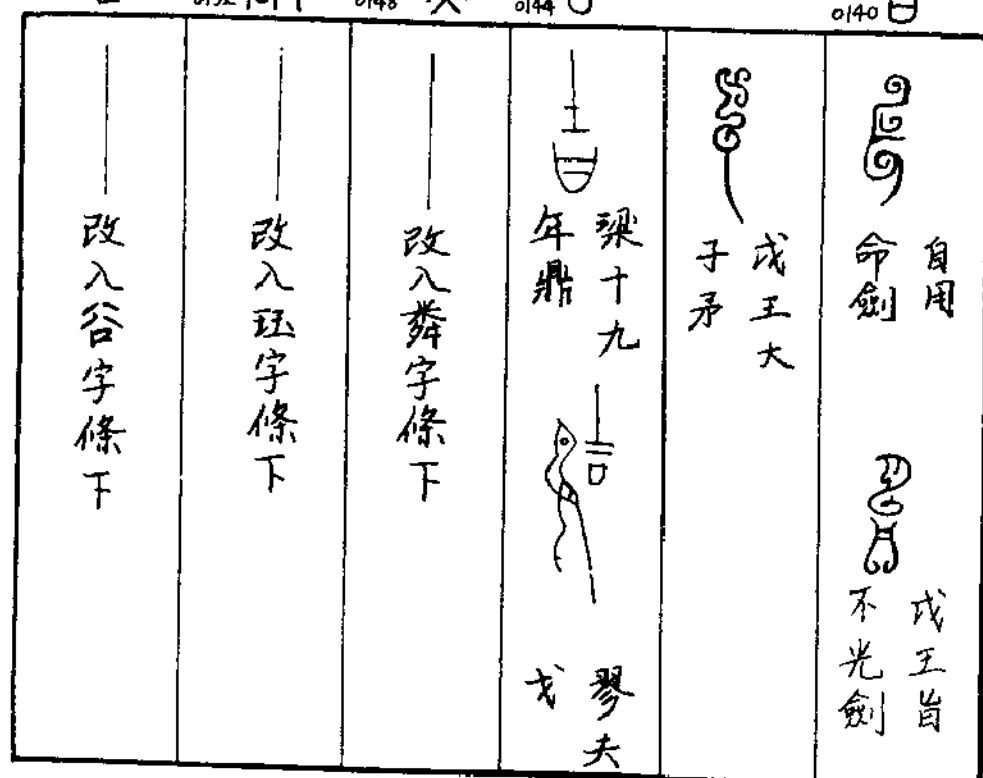 0140
自用
命劍
戉王旨
不光劍
戉王大
子矛
0144
梁十九
年鼎
翏夫
戈
0148
改入粦字條下
0152
改入珏字條下
改入谷字條下